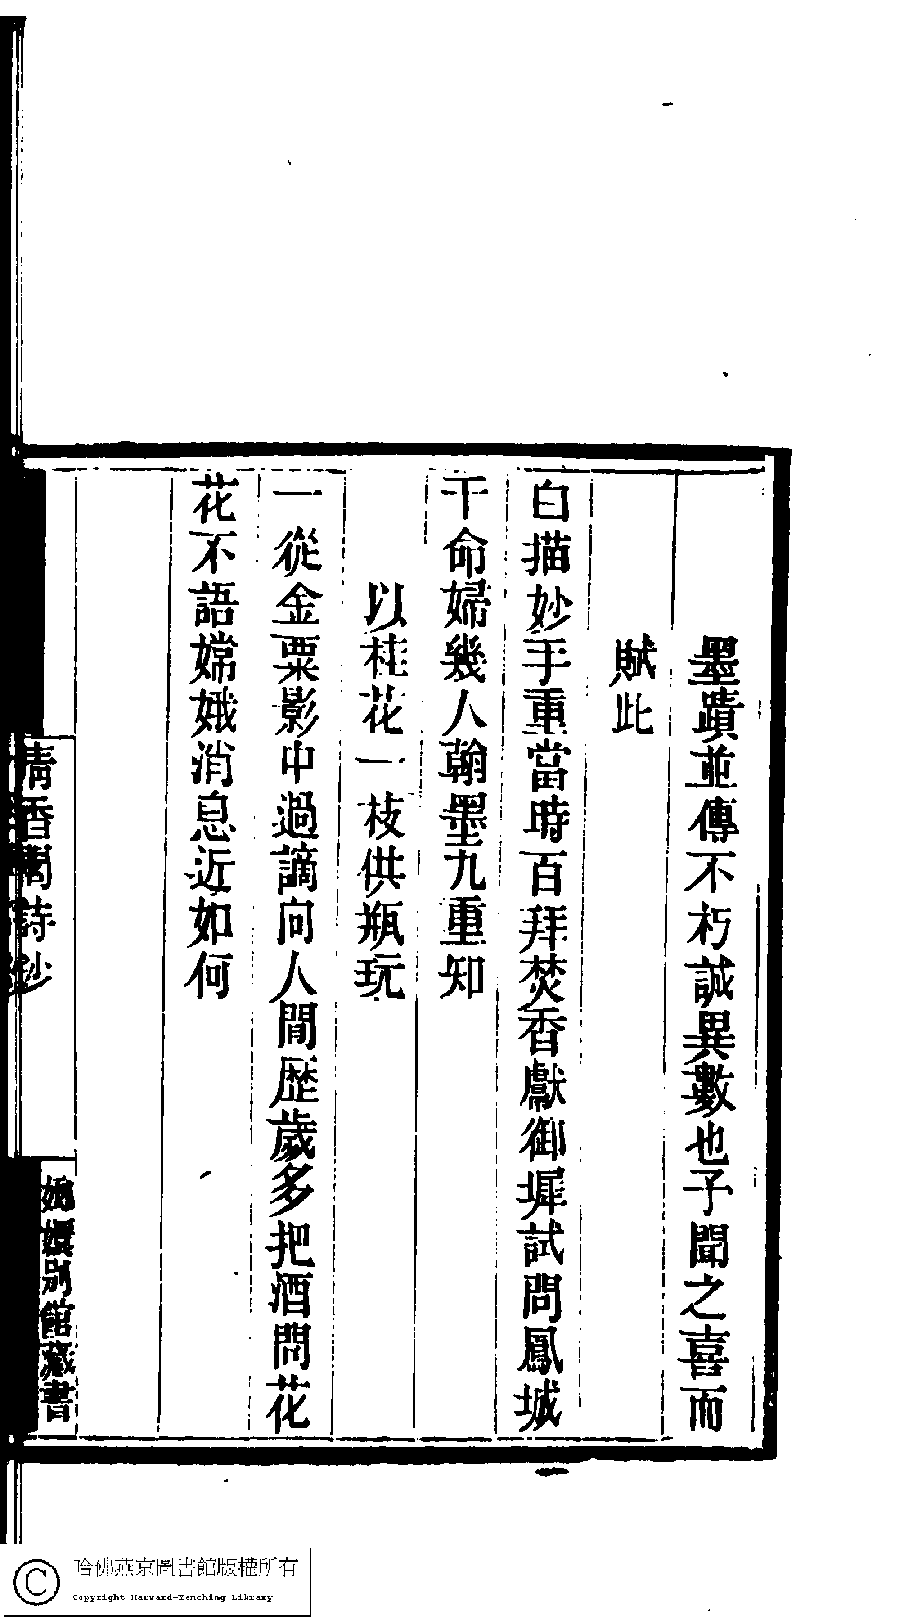 墨蹟並傳不朽誠異數也予聞之喜而
賦此
白描妙手重當時百拜焚香獻御墀試問鳳城
干命婦幾人翰墨九重知
以桂花一枝供瓶玩
一從金粟影中過謫向人間歴歲多把酒問花
花不語嫦娥消息近如何
清香閣詩鈔
嫏嬛別館藏書
哈佛燕京圖書館版權所有
Copyright Harvard-Yenching Library